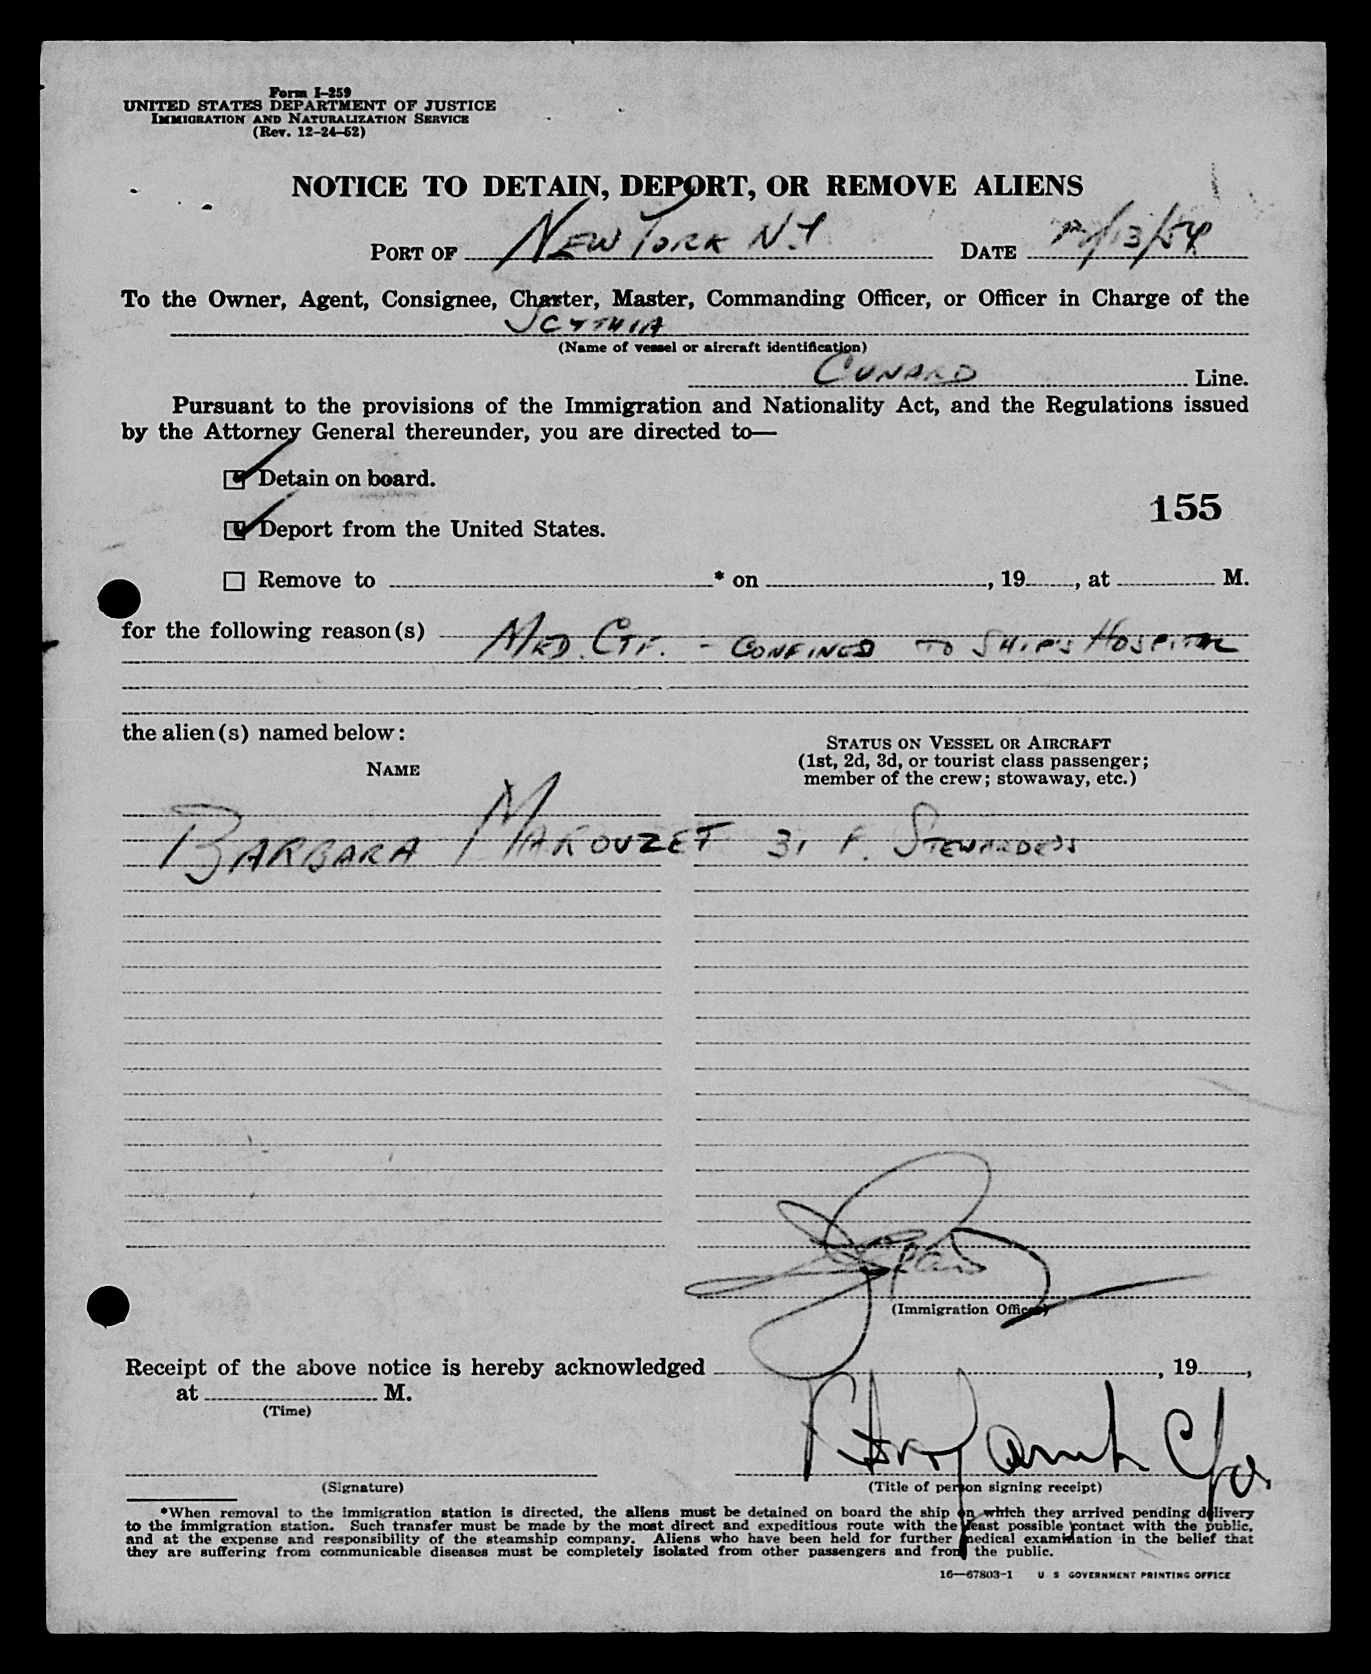 Form I-259
UNITED STATES DEPARTMENT OF JUSTICE
IMMIGRATION AND NATURALIZATION SERVICE
(Rev. 12-24-52)
NOTICE TO DETAIN, DEPORT, OR REMOVE ALIENS
PORT OF NEW YORK N.Y DATE 12/13/54
To the Owner, Agent, Consignee, Charter, Master, Commanding Officer, or Officer in Charge of the
SCYTHIA
(Name of vessel or aircraft identification)
CUNARD Line.
Pursuant to the provisions of the Immigration and Nationality Act, and the Regulations issued
by the Attorney General thereunder, you are directed to—
Detain on board.
155
Deport from the United States.
Remove to * on , 19 , at M.
for the following reason(s) MED. CTF. - CONFINED TO SHIP'S HOSPITAL
the alien(s) named below:
NAME
STATUS ON VESSEL OR AIRCRAFT
(1st, 2d, 3d, or tourist class passenger;
member of the crew; stowaway, etc.)
BARBARA MAROUZET 31 F. STEWARDESS
(Immigration Officer)
Receipt of the above notice is hereby acknowledged , 19 ,
at M.
(Time)
(Signature)
(Title of person signing receipt)
*When removal to the immigration station is directed, the aliens must be detained on board the ship on which they arrived pending delivery
to the immigration station. Such transfer must be made by the most direct and expeditious route with the least possible contact with the public,
and at the expense and responsibility of the steamship company. Aliens who have been held for further medical examination in the belief that
they are suffering from communicable diseases must be completely isolated from other passengers and from the public.
16—67803-1 U S GOVERNMENT PRINTING OFFICE